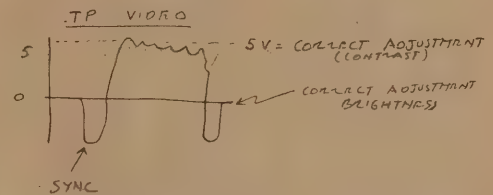 TP VIDEO
5
5V = CORRECT ADJUSTMENT
(CONTRAST)
0
CORRECT ADJUSTMENT
BRIGHTNESS
SYNC